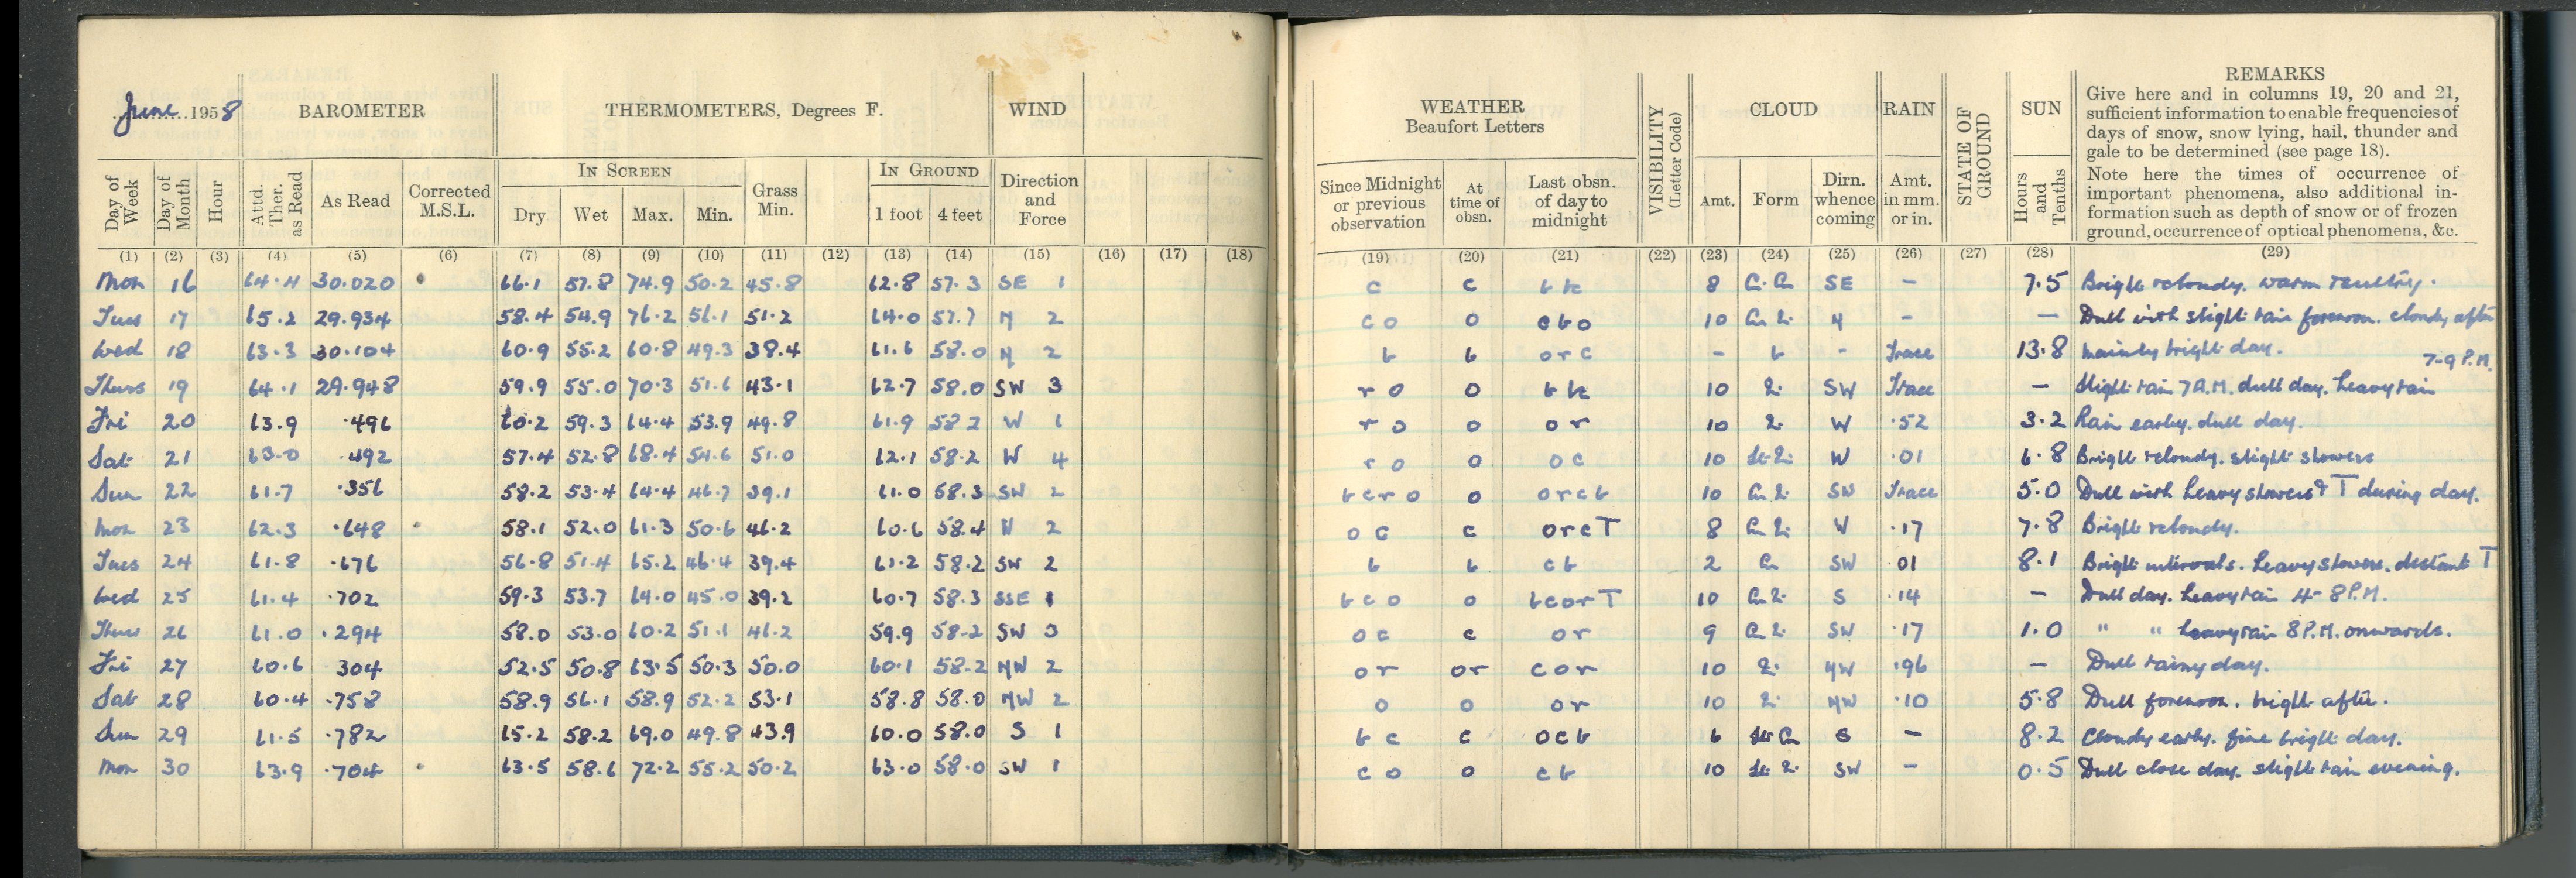 June 1958 BAROMETER THERMOMETERS, Degrees F. WIND
Day of Week Day of Month Hour Attd. Ther. as Read As Read Corrected M.S.L. IN SCREEN Dry Wet Max. Min. Grass Min. IN GROUND 1 foot 4 feet Direction and Force
(1) (2) (3) (4) (5) (6) (7) (8) (9) (10) (11) (12) (13) (14) (15) (16) (17) (18)
Mon 16 64.4 30.020 66.1 57.8 74.9 50.2 45.8 62.8 57.3 SE 1
Tues 17 65.2 29.934 58.4 54.9 76.2 56.1 51.2 64.0 57.7 N 2
Wed 18 63.3 30.104 60.9 55.2 60.8 49.3 38.4 61.6 58.0 N 2
Thurs 19 64.1 29.948 59.9 55.0 70.3 51.6 43.1 62.7 58.0 SW 3
Fri 20 63.9 .496 60.2 59.3 64.4 53.9 49.8 61.9 58.2 W 1
Sat 21 63.0 .492 57.4 52.8 68.4 54.6 51.0 62.1 58.2 W 4
Sun 22 61.7 .356 58.2 53.4 64.4 46.7 39.1 61.0 58.3 SW 2
Mon 23 62.3 .648 58.1 52.0 61.3 50.6 46.2 60.6 58.4 W 2
Tues 24 61.8 .676 56.8 51.4 65.2 46.4 39.4 61.2 58.2 SW 2
Wed 25 61.4 .702 59.3 53.7 64.0 45.0 39.2 60.7 58.3 SSE 1
Thurs 26 61.0 .294 58.0 53.0 60.2 51.1 46.2 59.9 58.2 SW 3
Fri 27 60.6 304 52.5 50.8 63.5 50.3 50.0 60.1 58.2 NW 2
Sat 28 60.4 .758 58.9 56.1 58.9 52.2 53.1 58.8 58.0 NW 2
Sun 29 61.5 .782 65.2 58.2 69.0 49.8 43.9 60.0 58.0 S 1
Mon 30 63.9 .704 63.5 58.6 72.2 55.2 50.2 63.0 58.0 SW 1
WEATHER Beaufort Letters VISIBILITY (Letter Code) CLOUD RAIN STATE OF GROUND SUN REMARKS
Give here and in columns 19, 20 and 21,
sufficient information to enable frequencies of
days of snow, snow lying, hail, thunder and
gale to be determined (see page 18).
Note here the times of occurrence of
important phenomena, also additional in-
formation such as depth of snow or of frozen
ground, occurrence of optical phenomena, &c.
Since Midnight or previous observation At time of obsn. Last obsn. of day to midnight Amt. Form Dirn. whence coming Amt. in mm. or in. Hours and Tenths
(19) (20) (21) (22) (23) (24) (25) (26) (27) (28) (29)
c c 8 SE – 7.5 Bright & cloudy. warm & sultry.
c o o c b o 10 N – – Dull with slight rain forenoon. cloudy after
b b o r c – b – Trace 13.8 Mainly bright day.
7-9 P.M.
r o o 10 SW Trace – Slight rain 7 A.M. dull day. heavy rain
r o o o r 10 W .52 3.2 Rain early. dull day.
r o o o c 10 W .01 6.8 Bright & cloudy. slight showers
b c r o o o r c b 10 SW Trace 5.0 Dull with heavy showers & T during day.
o c c o r c T 8 W .17 7.8 Bright & cloudy.
b b c b 2 SW 01 8.1 Bright intervals. heavy showers. distant T
b c o o b c o r T 10 S .14 – Dull day. heavy rain 4-8 P.M.
o c c o r 9 SW .17 1.0 " " heavy rain 8 P.M. onwards.
o r o r c o r 10 NW .96 – Dull rainy day.
o o o r 10 NW .10 5.8 Dull forenoon. bright after.
b c c o c b 6 S – 8.2 Cloudy early. fine bright day.
c o o c b 10 SW – 0.5 Dull close day. slight rain evening.